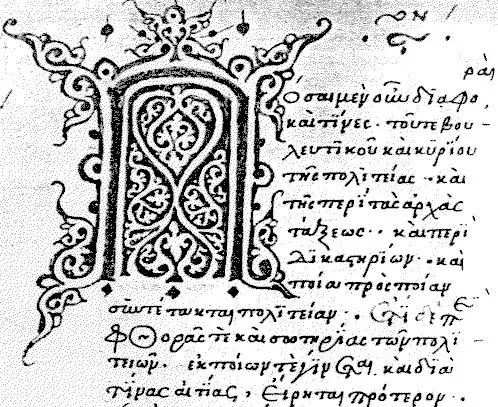 ον
ραὶ
Πόσαι μὲν οὖν διαφο
καὶ τίνες· τοῦ τε βου
λευτικοῦ καὶ κυρίου
τῆς πολιτείας· καὶ
τῆς περὶ τὰς ἀρχὰς
τάξεως· καὶ περὶ
δικαστηρίων· καὶ
ποία πρὸς ποίαν
συντέτακται πολιτείαν· ἔτι δὲ περὶ
φθορᾶς τε καὶ σωτηρίας τῶν πολι
τειῶν· ἐκ ποίων τε γίν καὶ διὰ
τίνας αἰτίας, εἴρηται πρότερον·